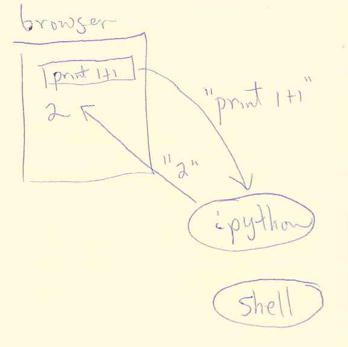 browser
print 1+1
2
"print 1+1"
"2"
ipython
shell